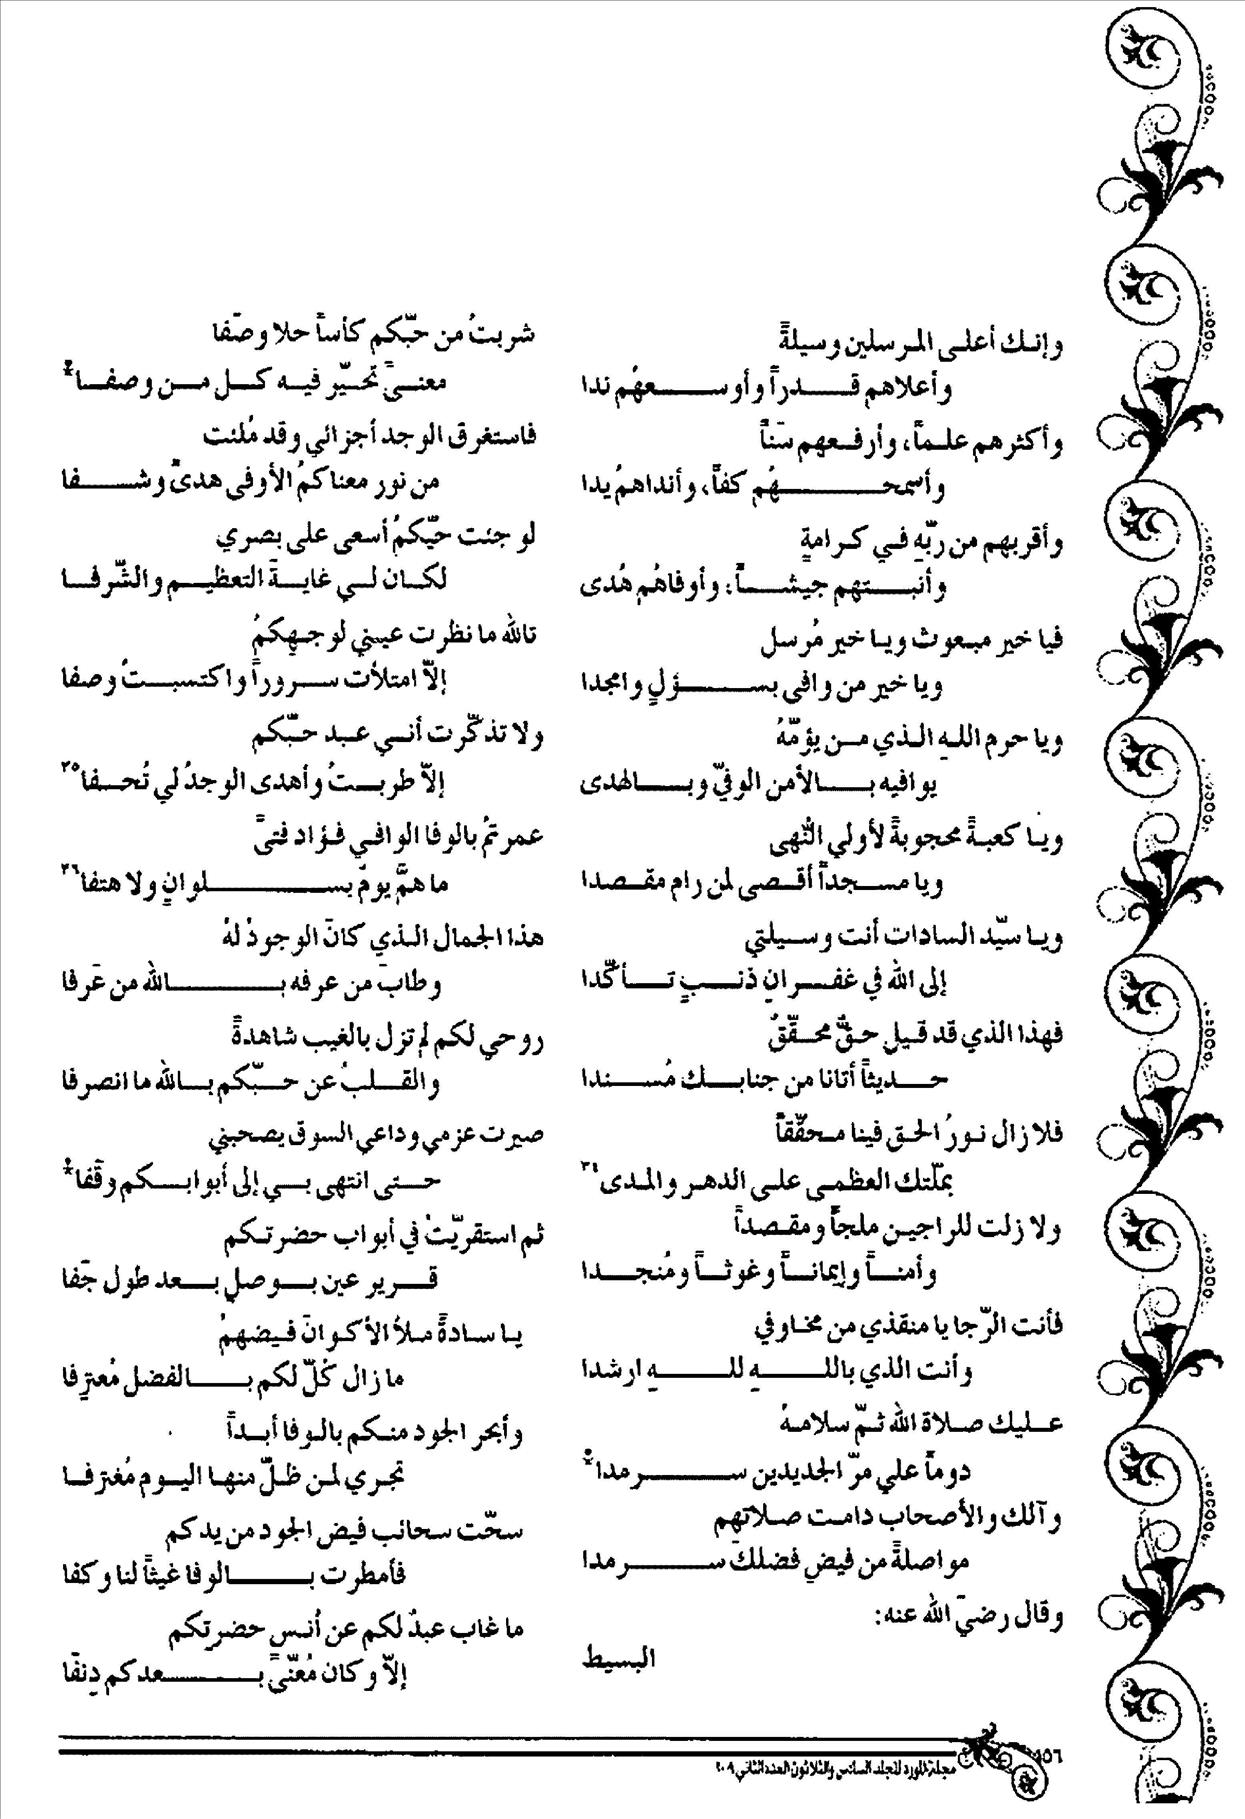 وإنك أعلى المرسلين وسيلةً
وأعلاهم قدراً وأوسعهُم ندا
وأكثرهم علماً، وأرفعهم سَناً
وأسمحهُم كفاً، وأنداهمُ يدا
وأقربهم من ربّهِ في كرامةٍ
وأنبتهم جيشاً، وأوفاهُم هُدى
فيا خير مبعوث ويا خير مُرسل
ويا خير من وافى بسؤلٍ وامجدا
ويا حرم اللهِ الذي من يؤمّهُ
يوافيه بالأمن الوفيّ وبالهدى
ويا كعبةً محجوبةً لأولي النُهى
ويا مسجداً أقصى لمن رام مقصدا
ويا سيّد السادات أنت وسيلتي
إلى الله في غفرانِ ذنبٍ تأكّدا
فهذا الذي قد قيل حقٌّ محقّقٌ
حديثاً أتانا من جنابك مُسندا
فلا زال نورُ الحق فينا محقّقاً
بملّتك العظمى على الدهر والمدى٣٤
ولا زلت للراجين ملجأً ومقصداً
وأمناً وإيماناً وغوثاً ومُنجدا
فأنت الرّجا يا منقذي من مخاوفي
وأنت الذي باللهِ للهِ ارشدا
عليك صلاة الله ثمّ سلامهُ
دوماً علي مرّ الجديدين سرمدا*
وآلك والأصحاب دامت صلاتهم
مواصلةً من فيضِ فضلكَ سرمدا
وقال رضيَ الله عنه:
البسيط
شربتُ من حبّكم كأساً حلا وصَفا
معنىً تحيّر فيه كل من وصفا*
فاستغرق الوجد أجزائي وقد مُلئت
من نور معناكمُ الأوفى هدىً وشفا
لو جئت حيّكمُ أسعى على بصري
لكان لي غايةَ التعظيم والشّرفا
تالله ما نظرت عيني لوجهكمُ
إلاّ امتلأت سروراً واكتسبتُ وصفا
ولا تذكّرت أني عبد حبّكم
إلاّ طربتُ وأهدى الوجدُ لي تُحفا٣٥
عمرتمُ بالوفا الوافي فؤاد فتىً
ما همَّ يومٌ بسلوانٍ ولا هتفا٣٦
هذا الجمال الذي كانَ الوجودُ لهُ
وطابَ من عرفه بالله من عَرفا
روحي لكم لم تزل بالغيب شاهدةً
والقلبُ عن حبّكم بالله ما انصرفا
صيرت عزمي وداعي السوق يصحبني
حتى انتهى بي إلى أبوابكم وقَفا*
ثم استقريّتُ في أبواب حضرتكم
قرير عين بوصلٍ بعد طول جَفا
يا سادةً ملأ الأكوانَ فيضهمُ
ما زال كُلّ لكم بالفضل مُعترِفا
وأبحر الجود منكم بالوفا أبداً
تجري لمن ظلّ منها اليوم مُغترفا
سحّت سحائب فيض الجود من يدكم
فأمطرت بالوفا غيثاً لنا وكفا
ما غاب عبدٌ لكم عن أُنسِ حضرتِكم
إلاّ وكان مُعنّىً ببعدكم دِنفَا
١٥٦
مجلة المورد المجلد السادس والثلاثون العدد الثاني ٢٠٠٩